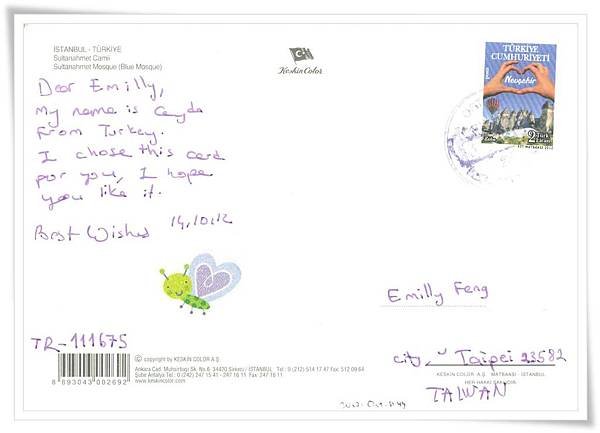 İSTANBUL - TÜRKİYE
Sultanahmet Camii
Sultanahmet Mosque (Blue Mosque)
Keskin Color
TÜRKİYE
CUMHURİYETİ
Nevşehir
Dear Emilly,
My name is Ceyda
From Turkey.
I chose this card
for you, I hope
you like it.
Best Wishes 14.10.12
Emilly Feng
TR-111675
city, Taipei 23582
TAIWAN
© copyright by KESKİN COLOR A.Ş.
Ankara Cad. Muhürdaşı Sk. No.6 34420 Sirkeci / İSTANBUL Tel.: 0 (212) 514 17 47 Fax: 512 09 64
Şube Antalya Tel.: 0 (242) 247 15 41 - 247 16 11 Fax: 247 16 11
www.keskincolor.com
8 693043 002692
KESKİN COLOR A.Ş. MATBAASI - İSTANBUL
HER HAKKI SAKLIDIR